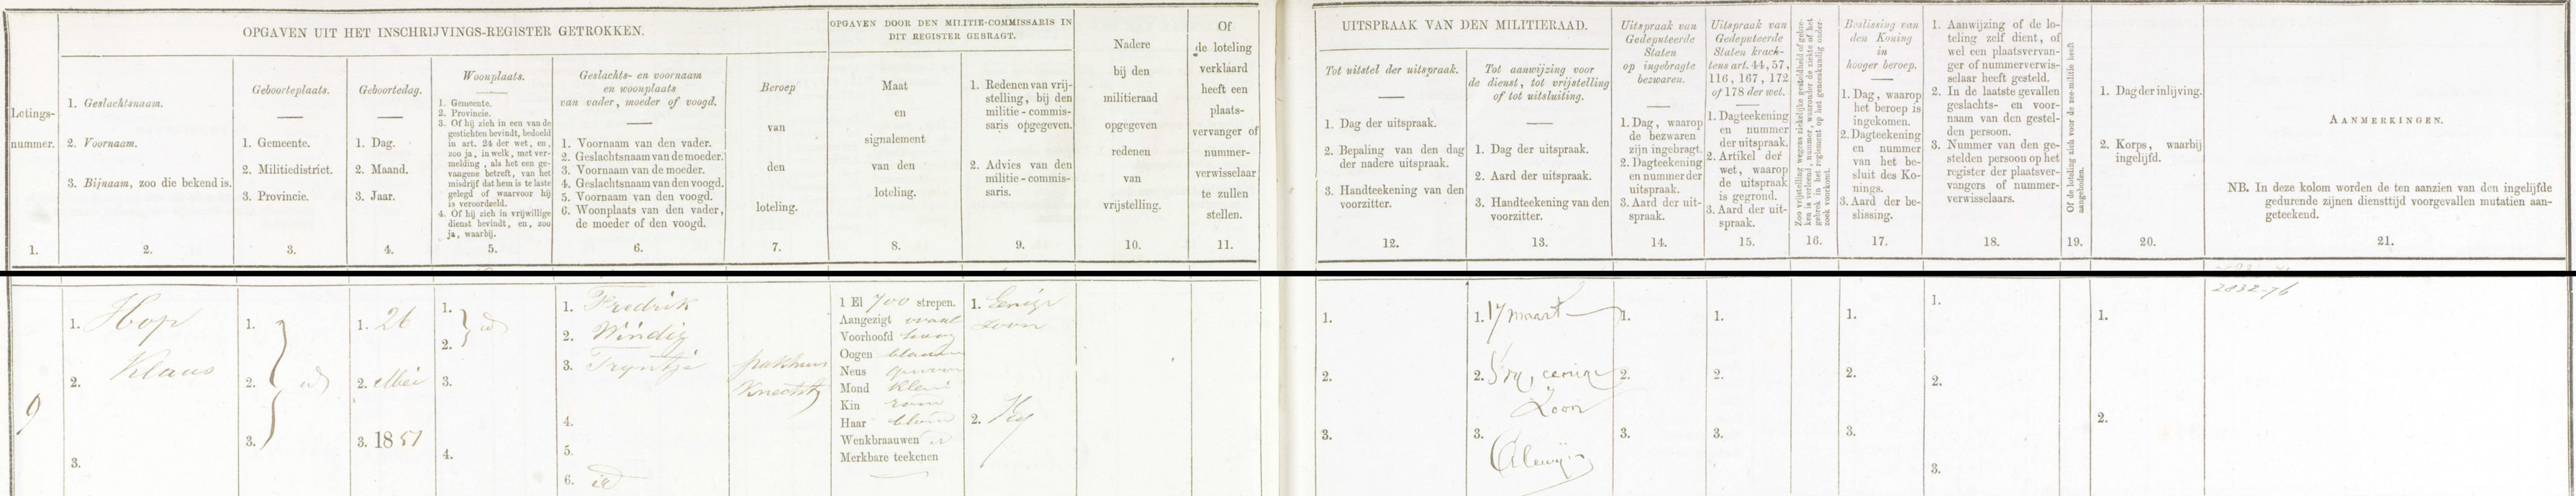 OPGAVEN UIT HET INSCHRIJVINGS-REGISTER GETROKKEN.
OPGAVEN DOOR DEN MILITIE-COMMISSARIS IN
DIT REGISTER GEBRAGT.
Lotings-
nummer.
1.
1. Geslachtsnaam.
2. Voornaam.
3. Bijnaam, zoo die bekend is.
2.
Geboorteplaats.
1. Gemeente.
2. Militiedistrict.
3. Provincie.
3.
Geboortedag.
1. Dag.
2. Maand.
3. Jaar.
4.
Woonplaats.
1. Gemeente.
2. Provincie.
3. Of hij zich in een van de
gestichten bevindt, bedoeld
in art. 24 der wet, en,
zoo ja, in welk, met ver-
melding, als het een ge-
vangene betreft, van het
misdrijf dat hem is te laste
gelegd of waarvoor hij
is veroordeeld.
4. Of hij zich in vrijwillige
dienst bevindt, en, zoo
ja, waarbij.
5.
Geslachts- en voornaam
en woonplaats
van vader, moeder of voogd.
1. Voornaam van den vader.
2. Geslachtsnaam van de moeder.
3. Voornaam van de moeder.
4. Geslachtsnaam van den voogd.
5. Voornaam van den voogd.
6. Woonplaats van den vader,
de moeder of den voogd.
6.
Beroep
van
den
loteling.
7.
Maat
en
signalement
van den
loteling.
8.
1. Redenen van vrij-
stelling, bij den
militie-commis-
saris opgegeven.
2. Advies van den
militie-commis-
saris.
9.
Nadere
bij den
militieraad
opgegeven
redenen
van
vrijstelling.
10.
Of
de loteling
verklaard
heeft een
plaats-
vervanger of
nummer-
verwisselaar
te zullen
stellen.
11.
UITSPRAAK VAN DEN MILITIERAAD.
Tot uitstel der uitspraak.
1. Dag der uitspraak.
2. Bepaling van den dag
der nadere uitspraak.
3. Handteekening van den
voorzitter.
12.
Tot aanwijzing voor
de dienst, tot vrijstelling
of tot uitsluiting.
1. Dag der uitspraak.
2. Aard der uitspraak.
3. Handteekening van den
voorzitter.
13.
Uitspraak van
Gedeputeerde
Staten
op ingebragte
bezwaren.
1. Dag, waarop
de bezwaren
zijn ingebragt.
2. Dagteekening
en nummer der
uitspraak.
3. Aard der uit-
spraak.
14.
Uitspraak van
Gedeputeerde
Staten krach-
tens art. 44, 57,
116, 167, 172
of 178 der wet.
1. Dagteekening
en nummer
der uitspraak.
2. Artikel der
wet, waarop
de uitspraak
is gegrond.
3. Aard der uit-
spraak.
15.
Zoo vrijstelling wegens ziekelijke gesteldheid of gebre-
ken is verleend, nummer, waaronder de ziekte of het
gebrek in het reglement op het geneeskundig onder-
zoek voorkomt.
16.
Beslissing van
den Koning
in
hooger beroep.
1. Dag, waarop
het beroep is
ingekomen.
2. Dagteekening
en nummer
van het be-
sluit des Ko-
nings.
3. Aard der be-
slissing.
17.
1. Aanwijzing of de lo-
teling zelf dient, of
wel een plaatsvervan-
ger of nummerverwis-
selaar heeft gesteld.
2. In de laatste gevallen
geslachts- en voor-
naam van den gestel-
den persoon.
3. Nummer van den ge-
stelden persoon op het
register der plaatsver-
vangers of nummer-
verwisselaars.
18.
Of de loteling zich voor de zee-militie heeft
aangeboden.
19.
1. Dag der inlijving.
2. Korps, waarbij
ingelijfd.
20.
AANMERKINGEN.
NB. In deze kolom worden de ten aanzien van den ingelijfde
gedurende zijnen diensttijd voorgevallen mutatien aan-
geteekend.
21.
9
1. Hop
2. Klaas
3.
1.
2. id
3.
1. 26
2. Mei
3. 1851
1.
2. id
3.
4.
1. Fredrik
2. Windig
3. Tryntje
4.
5.
6. id
pakhuis
knecht
1 El 700 strepen.
Aangezigt ovaal
Voorhoofd hoog
Oogen blaauw
Neus gewoon
Mond klein
Kin rond
Haar blond
Wenkbraauwen id
Merkbare teekenen
1. Eenige
zoon
2. Vrij
1.
2.
3.
1. 17 maart
2. Vrij, eenige
Zoon
3.
1.
2.
3.
1.
2.
3.
1.
2.
3.
1.
2.
3.
1.
2.
2832-76